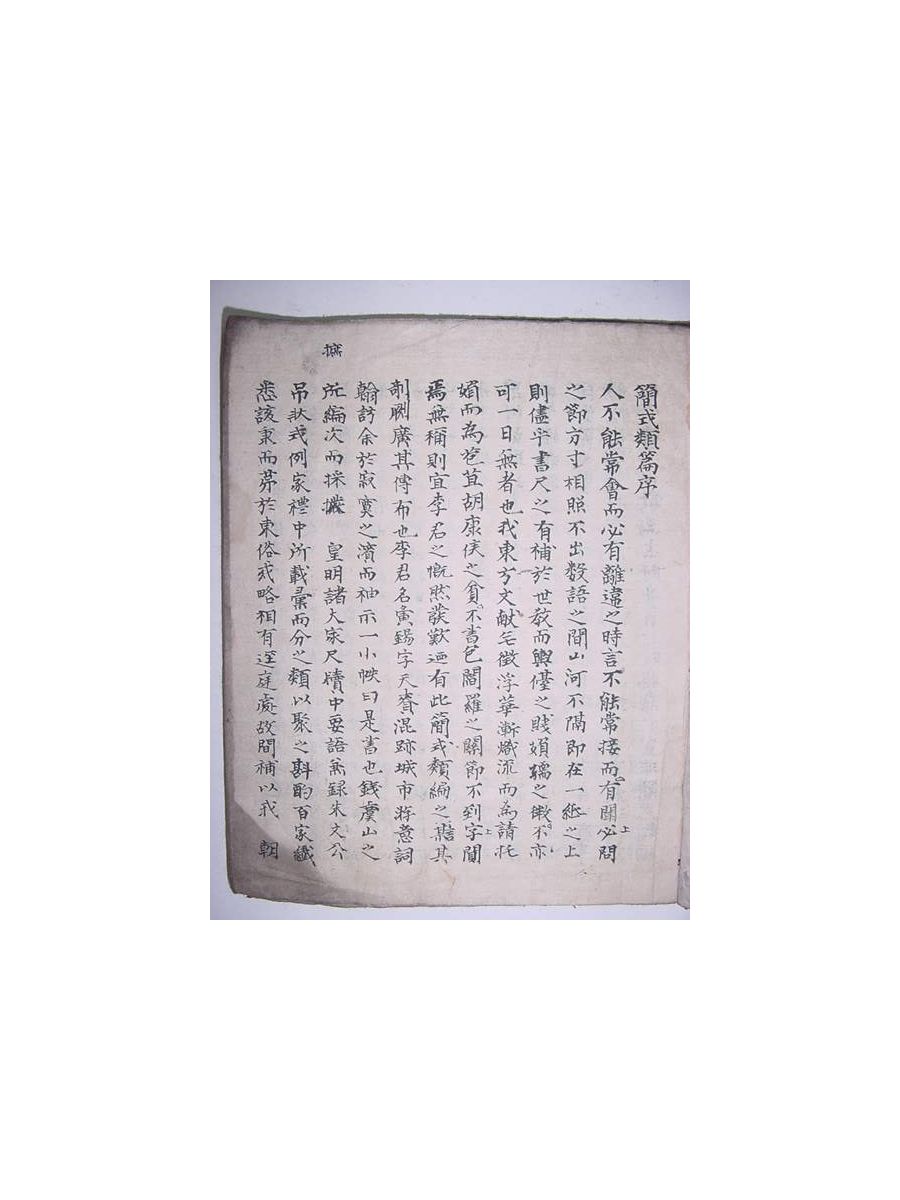 簡式類篇序
人不能常會而必有離違之時言不能常接而有關必問
之節方寸相照不出数語之間山河不隔即在一紙之上
則儘乎書尺之有補於世敎而輿儓之賤婦孺之微不亦
可一日無者也我東方文献無徵浮華漸熾流而為請托
媚而為苞苴胡康侯之貧不書包閻羅之關節不到字間
焉無稱則宜李君之慨然發歎迺有此簡式類編之集其
剞劂廣其傳布也李君名寅錫字天賚混跡城市游意詞
翰訪余於寂寞之濱而袖示一小帙曰是書也錢虞山之
所編次而採摭 皇明諸大家尺牘中要語兼録朱文公
吊狀式例家禮中所載彙而分之類以聚之斟酌百家纖
悉該秉而苐於東俗或略相有逕庭處故間補以我 朝
摭